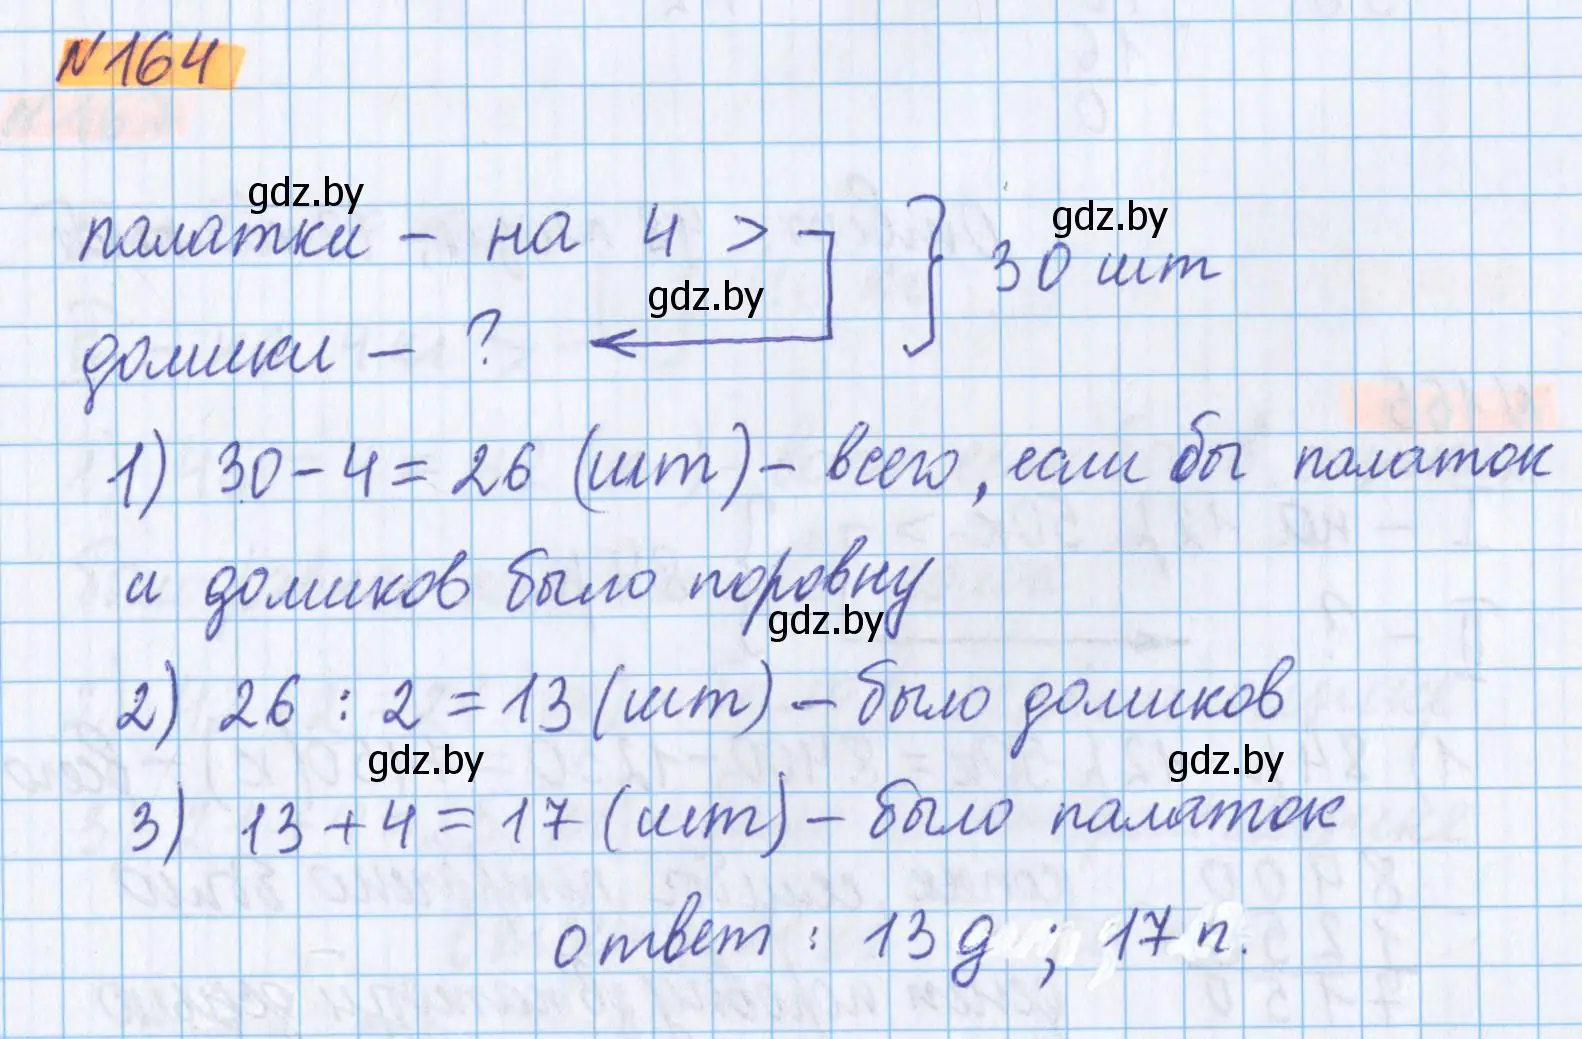 №164
gdz.by
gdz.by
палатки – на 4 > } 30 шт
gdz.by
домики – ?
1) 30 – 4 = 26 (шт) – всего, если бы палаток
и домиков было поровну
gdz.by
2) 26 : 2 = 13 (шт) – было домиков
gdz.by
gdz.by
3) 13 + 4 = 17 (шт) – было палаток
ответ : 13 д ; 17 п.